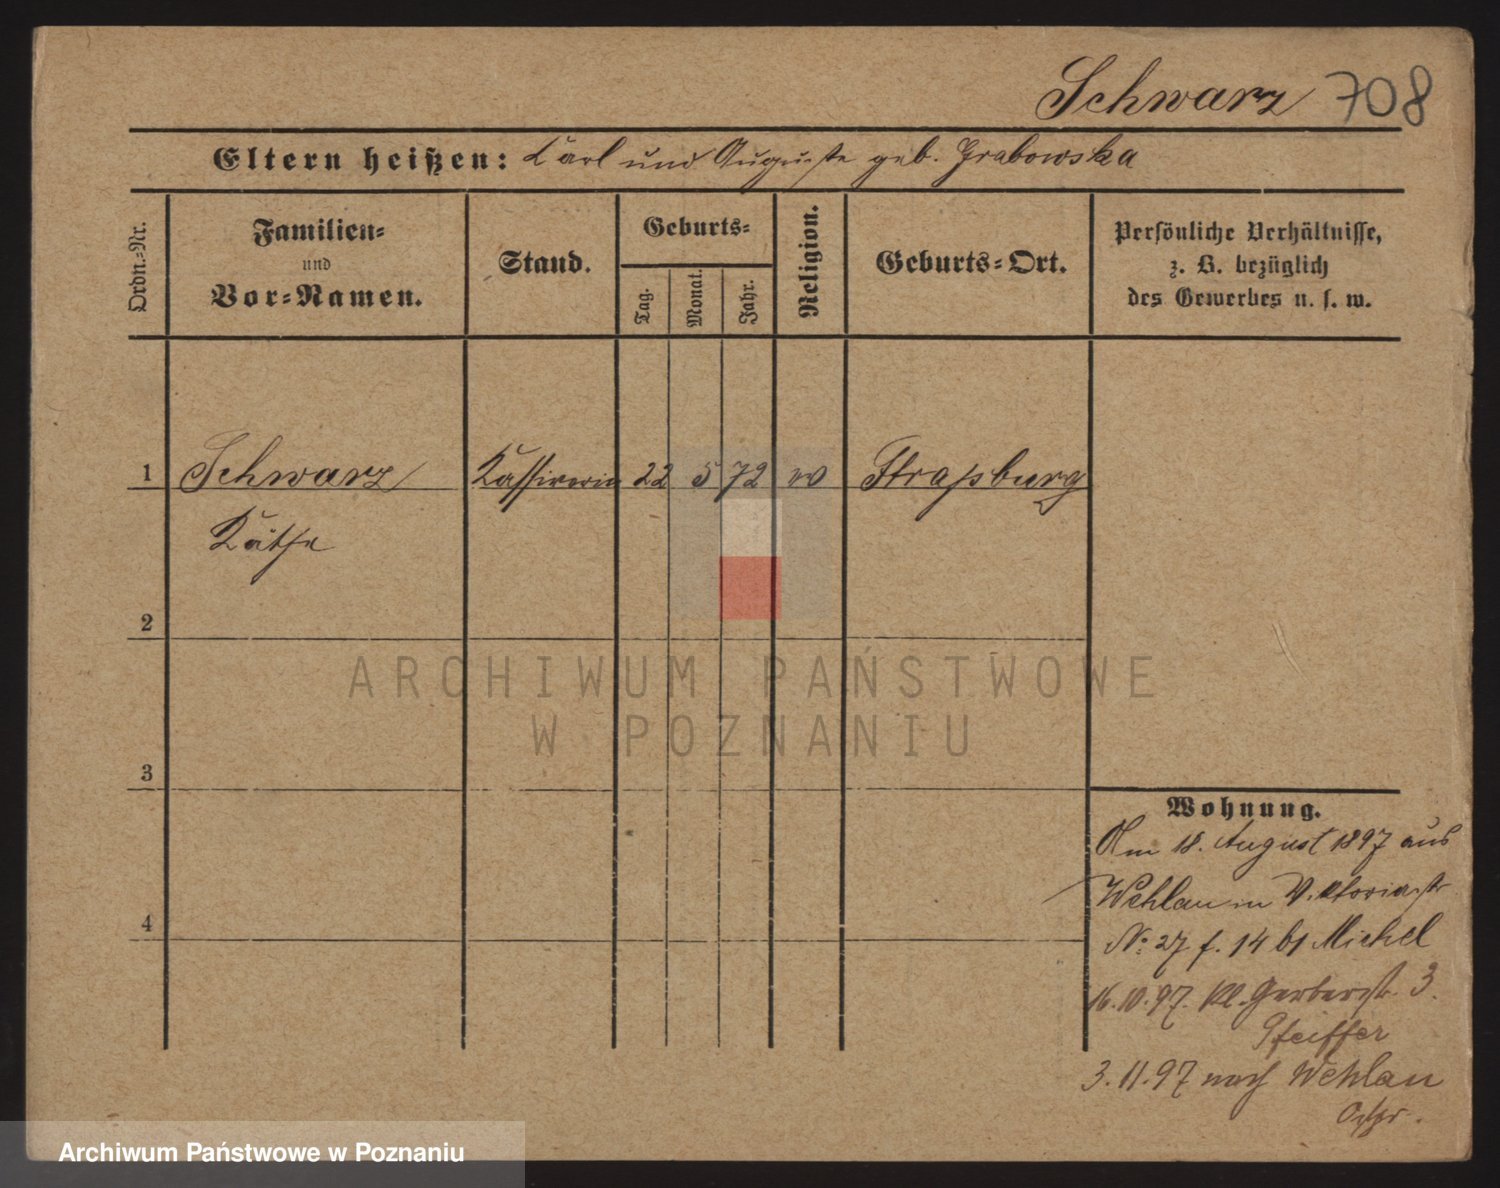 Schwarz 708
Eltern heißen: Carl und Auguste geb. Grabowska
Ordn.-Nr.
Familien-
und
Vor-Namen.
Stand.
Geburts-
Tag.
Monat.
Jahr.
Religion.
Geburts-Ort.
Persönliche Verhältnisse,
z. B. bezüglich
des Gewerbes u. s. w.
1 Schwarz Kassirerin 22 5 72 Straßburg
Käthe
2
3
4
Wohnung.
Am 18. August 1897 aus
Wehlau in Viktoriastr
No: 27 f. 14 bei Michel
16.10.97. Kl. Gerberstr. 3.
Pfeiffer
3.11.97 nach Wehlau
Ostpr.
ARCHIWUM PAŃSTWOWE
W POZNANIU
Archiwum Państwowe w Poznaniu